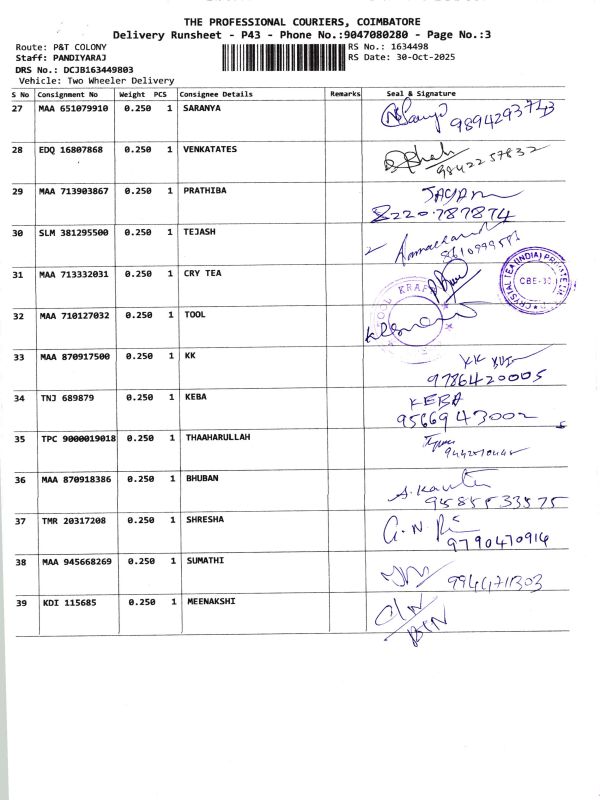 THE PROFESSIONAL COURIERS, COIMBATORE
Delivery Runsheet - P43 - Phone No.:9047080280 - Page No.:3
Route: P&T COLONY
RS No.: 1634498
Staff: PANDIYARAJ
RS Date: 30-Oct-2025
DRS No.: DCJB163449803
Vehicle: Two Wheeler Delivery
S No Consignment No Weight PCS Consignee Details Remarks Seal & Signature
27 MAA 651079910 0.250 1 SARANYA
9894293743
28 EDQ 16807868 0.250 1 VENKATATES
9842257832
29 MAA 713903867 0.250 1 PRATHIBA
8220787874
30 SLM 381295500 0.250 1 TEJASH
31 MAA 713332031 0.250 1 CRY TEA
CRYSTAL TEA (INDIA) PRIVATE
32 MAA 710127032 0.250 1 TOOL
TOOL KRAFT
33 MAA 870917500 0.250 1 KK
KK
9786420005
34 TNJ 689879 0.250 1 KEBA
KEBA
9566943002
35 TPC 9000019018 0.250 1 THAAHARULLAH
36 MAA 870918386 0.250 1 BHUBAN
9585533575
37 TMR 20317208 0.250 1 SHRESHA
9790470916
38 MAA 945668269 0.250 1 SUMATHI
9944711303
39 KDI 115685 0.250 1 MEENAKSHI